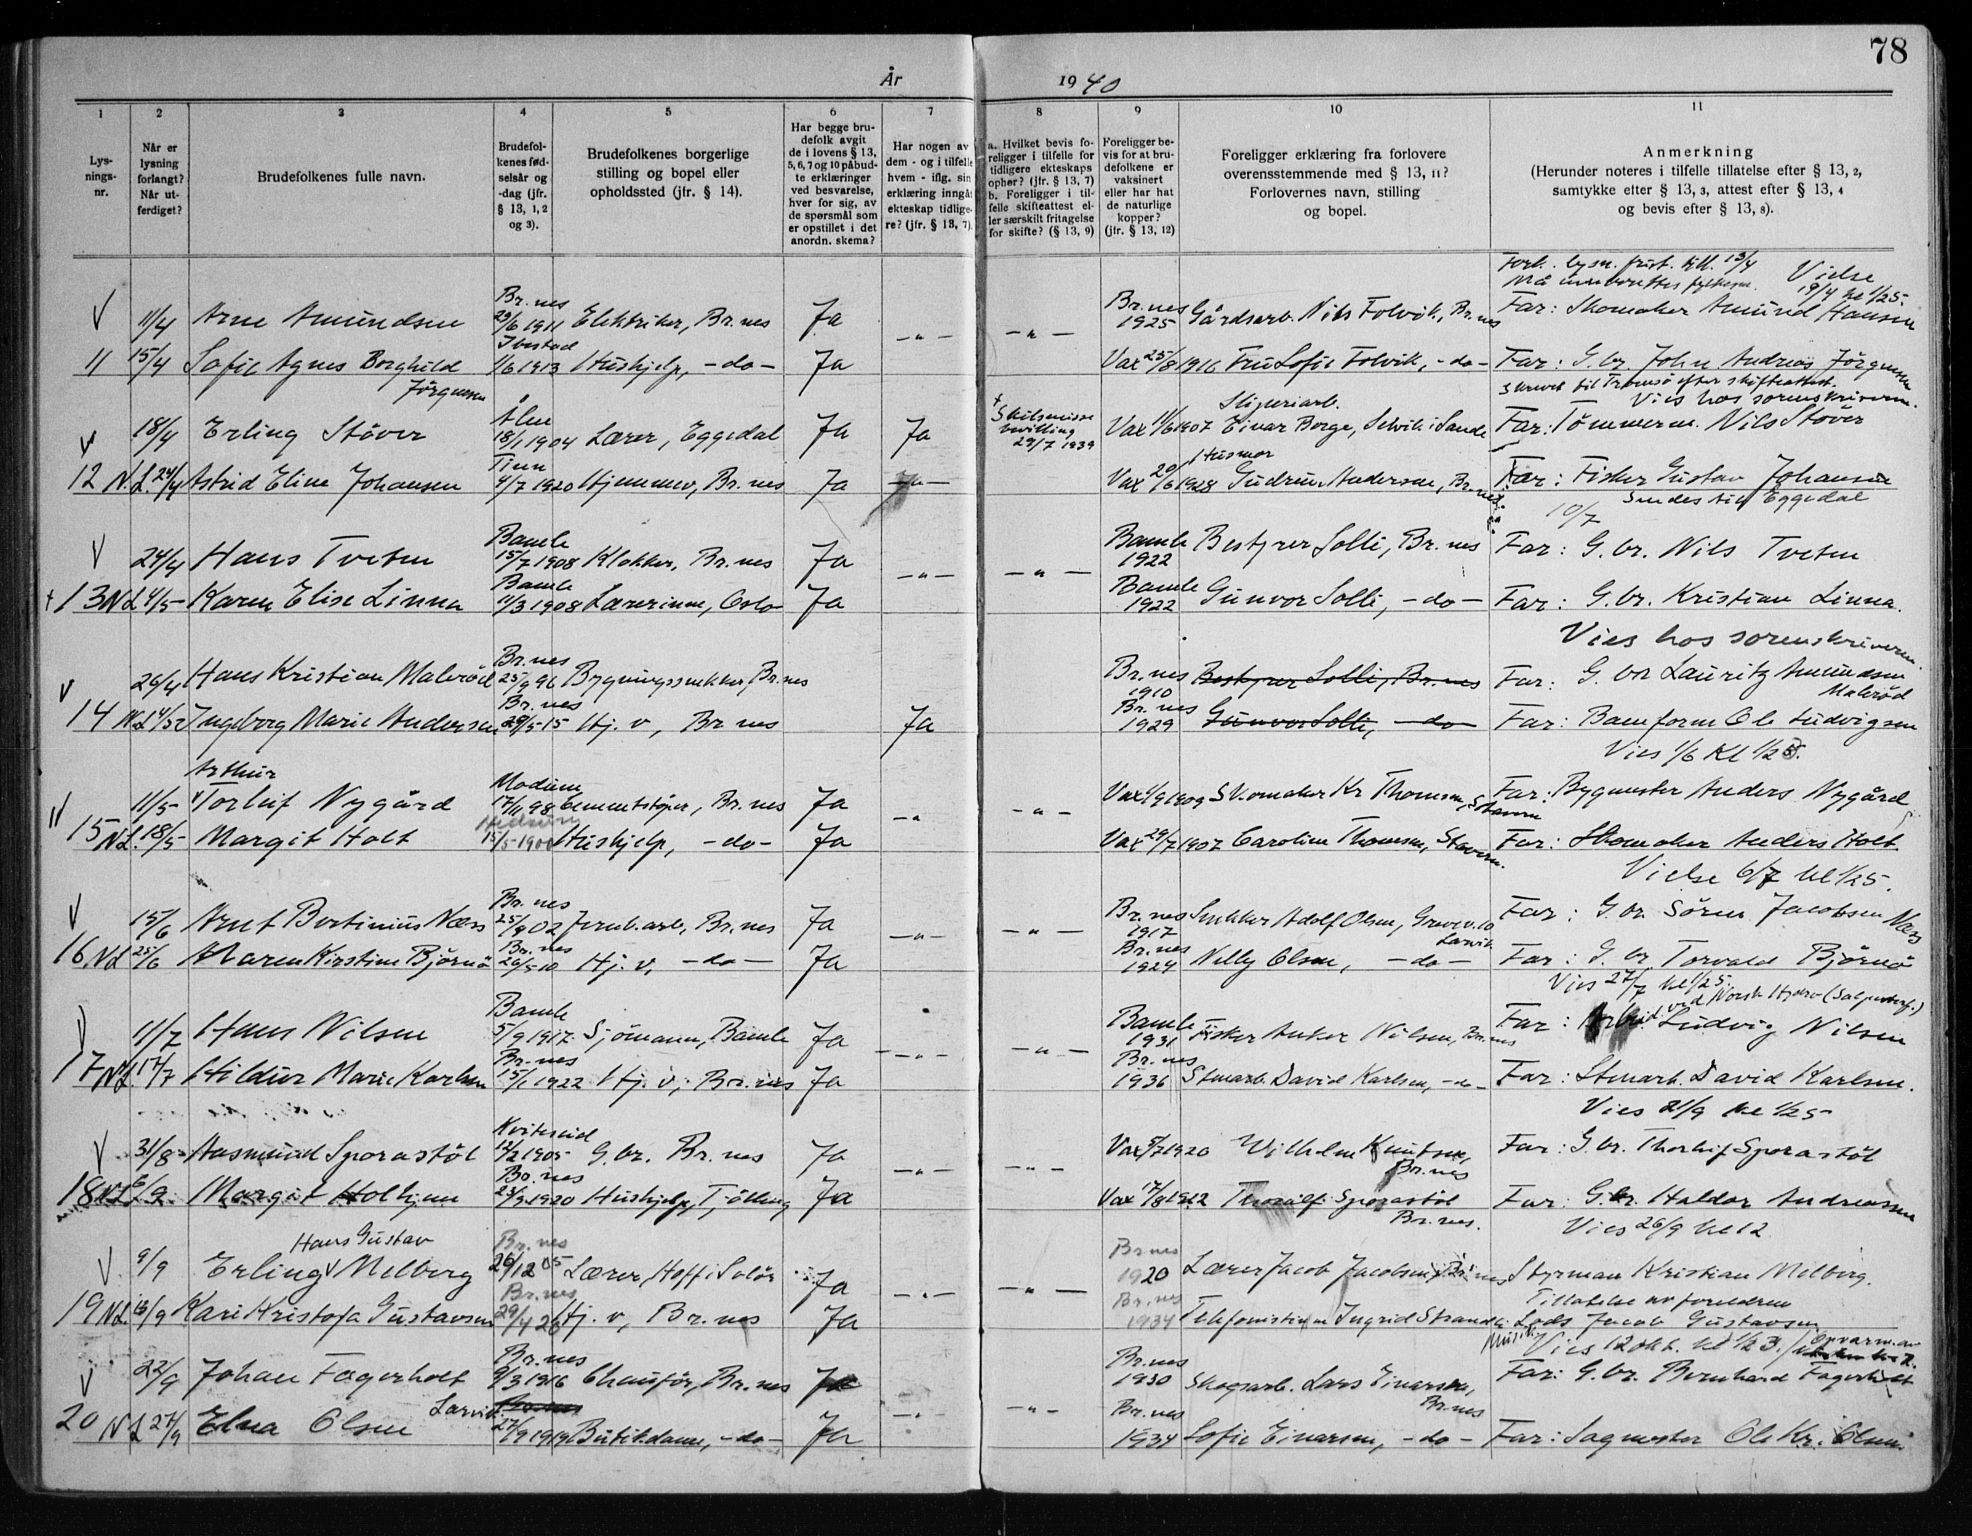 78
År 1940
1 2 3 4 5 6 7 8 9 10 11
Lys-
nings-
nr.
Når er
lysning
forlangt?
Når ut-
ferdiget?
Brudefolkenes fulle navn.
Brudefol-
kenes fød-
selsår og
-dag (jfr.
§ 13, 1, 2
og 3).
Brudefolkenes borgerlige
stilling og bopel eller
opholdssted (jfr. § 14).
Har begge bru-
defolk avgit
de i lovens § 13,
5, 6, 7 og 10 påbud-
te erklæringer
ved besvarelse,
hver for sig, av
de spørsmål som
er opstillet i det
anordn. skema?
Har nogen av
dem - og i tilfelle
hvem - iflg. sin
erklæring inngått
ekteskap tidlige-
re? (jfr. § 13, 7)
a. Hvilket bevis fo-
religger i tilfelle for
tidligere ekteskaps
ophør? (jfr. § 13, 7)
b. Foreligger i til-
felle skifteattest el-
ler særskilt fritagelse
for skifte? (§ 13, 9)
Foreligger be-
vis for at bru-
defolkene er
vaksinert
eller har hat
de naturlige
kopper?
(jfr. § 13, 12)
Foreligger erklæring fra forlovere
overensstemmende med § 13, 11?
Forlovernes navn, stilling
og bopel.
Anmerkning
(Herunder noteres i tilfelle tillatelse efter § 13, 2,
samtykke efter § 13, 3, attest efter § 13, 4
og bevis efter § 13, 8).
Vielse
19/4 kl 1/25.
V 11/4 Arne Amundsen Br.nes 29/6 1911 Elektriker, Br.nes Ja -"- -"- Br.nes 1925 Gårdsarb. Nils Folvik, Br.nes Far: Skomaker Amund Hansen
11 15/4 Sofie Agnes Borghild Jørgensen Ibestad 1/6 1913 Hushjelp, -do- Ja Vax 25/8 1916 Fru Sofie Folvik, -do- Far: G.br. John Andreas Jørgensen
Skrevet til Tromsö efter skifteattest.
Vies hos sorenskriveren.
V 18/4 Erling Støver Ålen 18/1 1904 Lærer, Eggedal Ja Ja Skilsmisse bevilling 29/7 1939 Vax 11/6 1907 Sliperiarb. Einar Borge, Selvik i Sande Far: Tømmerm. Nils Støver
12 N.L. 24/4 Astrid Eline Johansen Tinn 4/7 1920 Hjemmev, Br.nes Ja -"- Vax 20/6 1928 Husmor Gudrun Andersen, Br.nes Far: Fisker Gustav Johansen
10/7 Sendes til Eggedal
V 24/4 Hans Tveten Bamle 15/7 1908 Klokker, Br.nes Ja -"- -"- Bamle 1922 Bestyrer Solli, Br.nes Far: G.br. Nils Tveten
+13 NL 4/5 Karen Elise Linna Bamle 11/3 1908 Lærerinne, Oslo Ja Bamle 1922 Gunvor Solli, -do- Far: G.br. Kristian Linna.
Vies hos sorenskriveren.
V 26/4 Hans Kristian Malerød Br.nes 25/9 96 Bygningssnekker, Br.nes Br.nes 1910 Bestyrer Solli, Br.nes Far: G.br Lauritz Amundsen Malerød
14 NL 4/5 Ingeborg Marie Andersen Br.nes 29/5-15 Hj.v, Br.nes Ja Br.nes 1929 Gunvor Solli, -do- Far: Baneform Ole Ludvigsen
Vies 1/6 Kl 1/25.
V 11/5 Arthur Torleif Nygård Modum 17/1 98 Cementstøper, Br.nes Ja -"- -"- Vax 4/9 1909 Skomaker Kr Thomsen, Stavern Far: Bygmester Anders Nygård
15 NL. 18/5 Margit Holt 15/5-1900 Hushjelp, -do- Ja Vax 29/7 1907 Caroline Thomsen, Stavern. Far: Skomaker Anders Holt.
Vielse 6/7 kl 1/25.
V 15/6 Arnt Bertinius Næss Br.nes 25/9 02 Jernb.arb., Br.nes Ja -"- -"- Br.nes 1917 Snekker Adolf Olsen, Grevev.10 Larvik Far: G.br Søren Jacobsen Næss
16 NL 25/6 Maren Kirstine Bjørnø Br.nes 26/5-10 Hj.v, -do- Ja Br.nes 1924 Nelly Olsen, -do- Far: G.br Torvald Bjørnø
Vies 27/7 kl 1/25.
V 11/7 Hans Nilsen Bamle 5/9 1917. Sjømann, Bamle Ja -"- -"- Bamle 1931 Fisker Anker Nilsen, Br.nes Far: Arbeid. ved Norsk Hydro (Salpeterf.) Ludvig Nilsen
17 NL. 17/7 Hildur Marie Karlsen Br.nes 15/1 1922 Hj.v, Br.nes Ja Br.nes 1936 Stenarb. David Karlsen, -do- Far: Stenarb. David Karlsen.
Vies 21/9 kl 1/25
V 31/8 Aasmund Sporastøl Kviteseid 12/2 1905 G.br. Br.nes Ja -"- -"- Vax 5/7 1920 Wilhelm Knutsen, Br.nes Far: G.br. Thorleif Sporastøl
18 NL 6/9. Margit Holhjem Br.nes 23/9 1920 Hushjelp, Tjølling Ja Vax 17/8 1912 Sporastøl Br.nes. Far: G.br. Haldor Andreassen
Vies 26/9 kl 12
V 9/9 Hans Gustav Erling Melberg Br.nes 26/12 05 Lærer, Hoff i Solør Ja -"- -"- Br.nes 1920 Lærer Jacob Jacobsen, Br.nes Styrman Kristian Melberg.
Tillatelse av foreldren
19 NL. 16/9 Kari Kristofa Gustavsen Br.nes 29/4 26 Hj.v, Br.nes Ja Br.nes 1934 Telefonistinne Ingrid Strand Lods Jacob Gustavsen
Musik Vies 12 okt. kl 1/2 3. Opvarm. av
V 22/9 Johan Fagerholt Br.nes 9/3 1916 Chaufør, Br.nes Ja -"- -"- Br.nes 1930 Skogsarb. Lars Einarsen, Br.nes Far: G.br. Bernhard Fagerholt
20 NL 27/9 Elna Olsen Larvik 27/9 1919 Butikdame, -do- Ja Br.nes 1934 Sofie Einarsen, -do- Far: Sagmester Ole Kr. Olsen